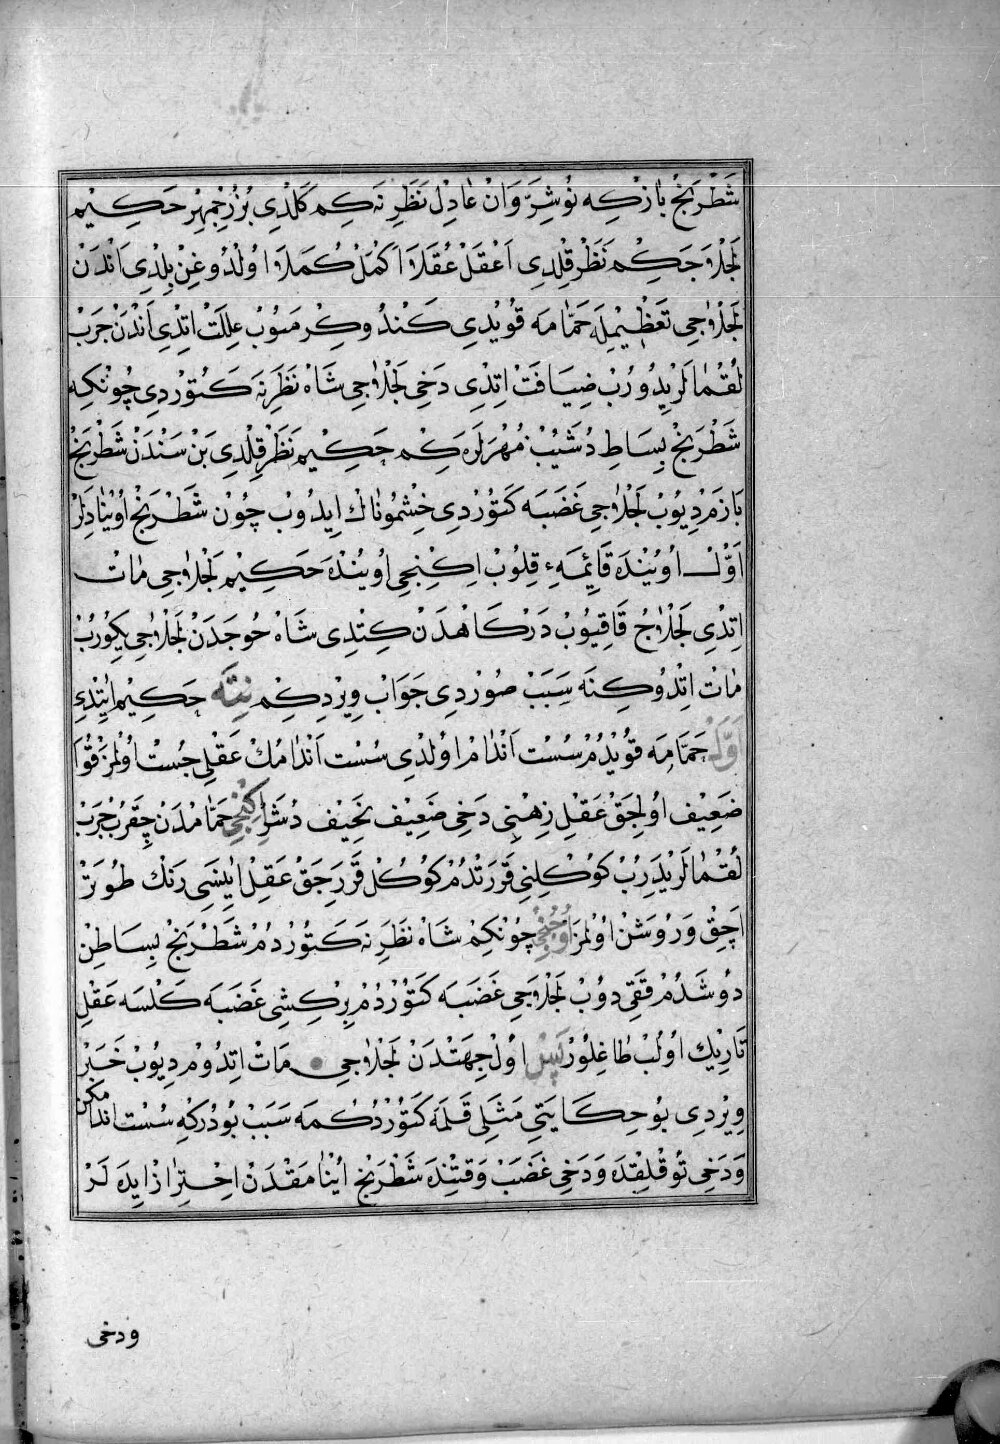 شَطْرَنْجْ بٰازْكِه نُوشِرَوَانْ عٰادِلْ نَظَرِنَه كِم كَلْدِى بُزُرْجْمِهِرْ حَكِيْم
لَجْلَاجَه كِمْ نَظَرْ قِلْدِى اَعْقَلْ عُقَلَا اَكْمَلْ كُمَلَا اُولْدُوغِنْ بِلْدِى اَنْدَنْ
لَجْلَاجِى تَعْظِيْمِلَه حَمَّامَه قُويْدِى كَنْدُو كِرْمَيُوبْ عِللَتْ اِتْدِى اَنْدَنْ چَرَبْ
لُقْمَالَرْ يِدُورُبْ ضِيَافَتْ اِتِدِى دَخِى لَجْلَاجِى شَاهْ نَظَرِنَه كَتُوْرْدِى چُونْكِه
شَطْرَنْجْ بِسَاطِ دُشَيُبْ مُهْرَلَرَه كِمْ حَكِيْم نَظَرْ قِلْدِى بَنْ سَنْدَنْ شَطْرَنْجْ
بَازَمْ دِيُوبْ لَجْلَاجِى غَضَبَه كَتُوْرْدِى خِشْمُونَاكْ اِيدُوبْ چُونْ شَطْرَنْجْ اُوْيْنَادِلَرْ
اَوَّلْ اُويُنْدَه قَايِمَهِٔ قِلُوبْ اِكِنْجِى اُويُنْدَه حَكِيْم لَجْلَاجِى مَاتْ
اِتْدِى لَجْلَاجْ قَاقِيُوبْ دَرْكَاهْدَنْ كِتْدِى شَاهْ خُوجَدَنْ لَجْلَاجِى يِكُورُبْ
مَاتْ اِتْدُوكِنَه سَبَبْ صُورْدِى جَوَابْ وِيرْدِكِمْ نِتَه حَكِيْم اَيِتْدِى
اَوَّلْ حَمَّامَه قُويْدُمْ سُسْتْ اَنْدَامْ اُولْدِى سُسْتْ اَنْدَامُكْ عَقْلِى جُسْتْ اُولْمَزْ قُوَا
ضَعِيْف اُولِجَقْ عَقْلِ زِهْنِى دَخِى ضَعِيْف نَحِيْف دُشَرْ اِكِنْجِى حَمَّامْدَنْ چِقَرُبْ چَرَبْ
لُقْمَالَرْ يِدَرُبْ كُوكْلِنِى قَرَرْتْدُمْ كُوكُلْ قَرَرِجَقْ عَقِلْ اَيْنَسِى رَنْكْ طُوتَرْ
اَچِقْ وَرُوشَنْ اُولْمَزْ اُوچُنْجِى چُونْكِمْ شَاهْ نَظَرِنَه كَتُورْدُمْ شَطْرَنْجْ بِسَاطِنْ
دُوشَدُمْ قَقِى دُوبْ لَجْلَاجِى غَضَبَه كَتُوْرْدُمْ بِرْكِشِى غَضَبَه كَلْسَه عَقْلِ
تَارِيكْ اُولُبْ طَاغِلُورْ پَسْ اُولْ جِهَتْدَنْ لَجْلَاجِى مَاتْ اِتْدُومْ دِيُوبْ خَبَرْ
وِيرْدِى بُو حِكَايَتِى مَثَلِى قَلَمَه كَتُوْرْدُكُمَه سَبَبْ بُودُرْكِه سُسْتْ اَنْدَامْكَنْ
وَدَخِى تُوقْلِقْدَه وَدَخِى غَضَبْ وَقْتِنْدَه شَطْرَنْجْ اُيْنَامَقْدَنْ اِحْتِرَازْ اِيدَه لَرْ
ودخى